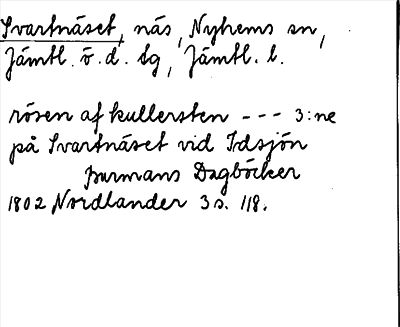 Svartnäset, näs, Nyhems sn,
Jämtl. ö. d. tg, Jämtl. l.
rösen af kullersten --- 3:ne
på Svartnäset vid Idsjön
Burmans Dagböcker
1802 Nordlander 3 s. 118.